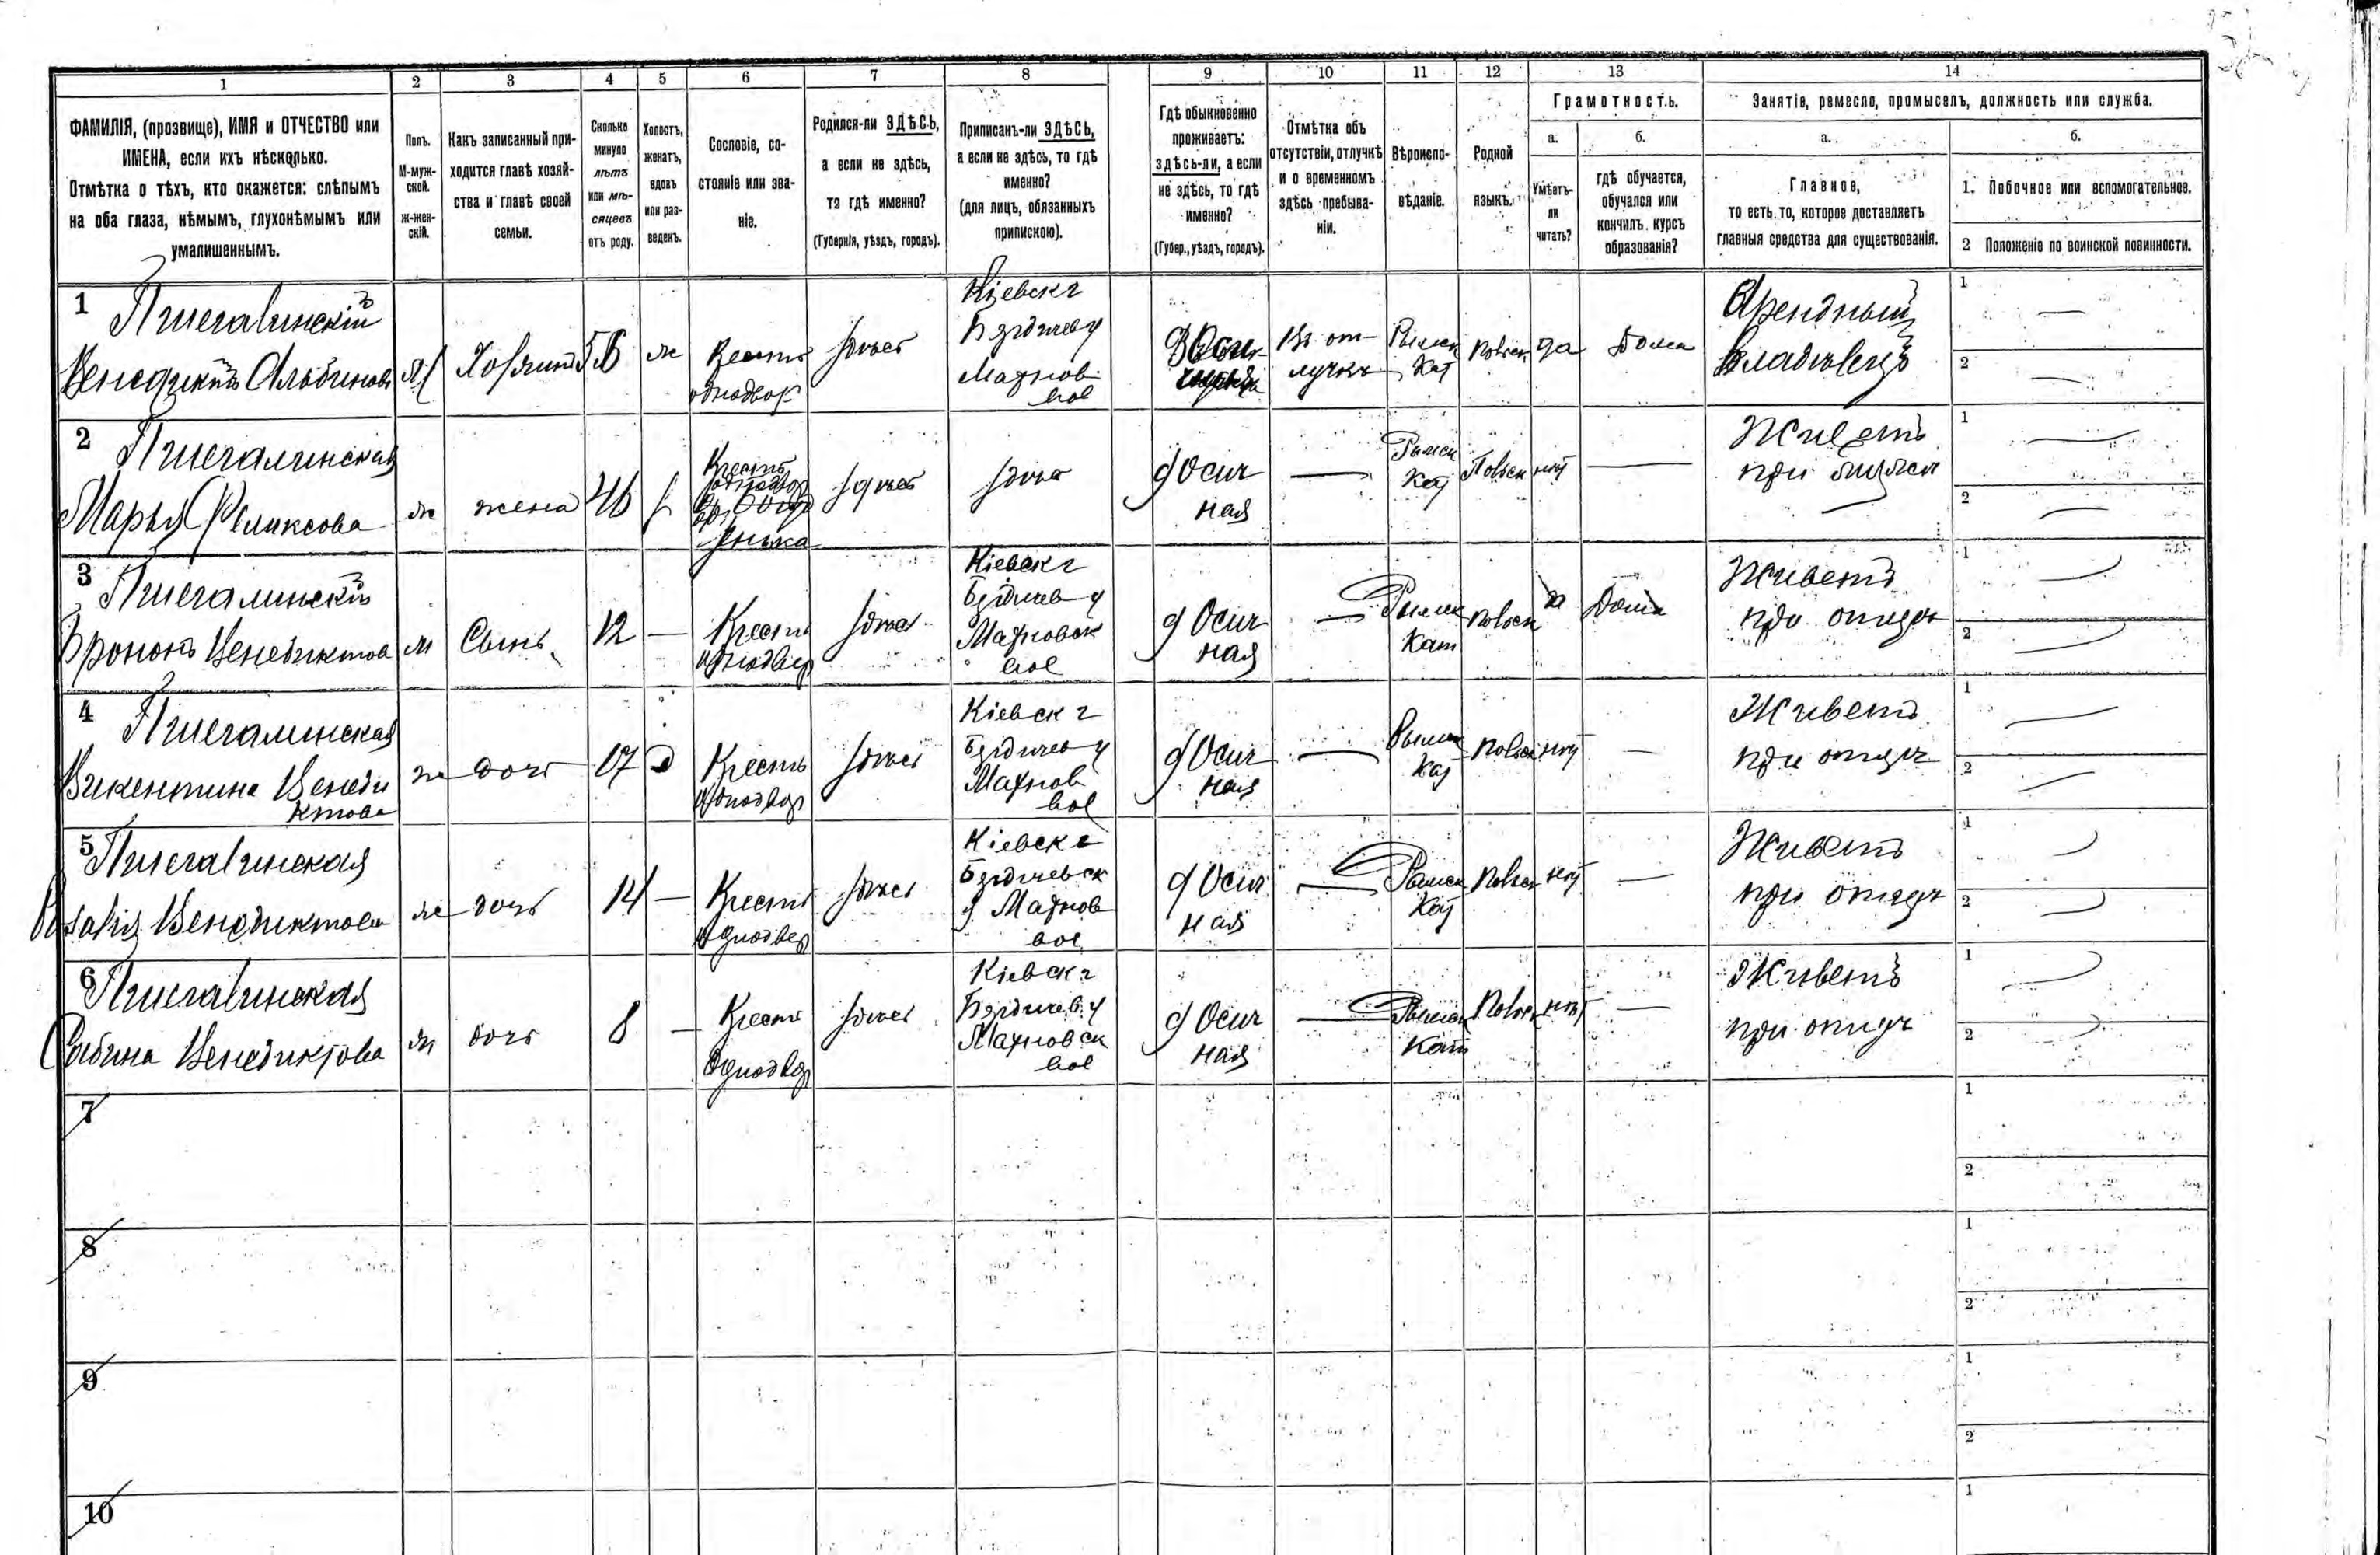 1 2 3 4 5 6 7 8 9 10 11 12 13 14
ФАМИЛІЯ, (прозвище), ИМЯ и ОТЧЕСТВО или
ИМЕНА, если ихъ нѣсколько.
Отмѣтка о тѣхъ, кто окажется: слѣпымъ
на оба глаза, нѣмымъ, глухонѣмымъ или
умалишеннымъ.
Полъ.
М-муж-
ской.
ж-жен-
скій.
Какъ записанный при-
ходится главѣ хозяй-
ства и главѣ своей
семьи.
Сколько
минуло
лѣтъ
или мѣ-
сяцевъ
отъ роду.
Холостъ,
женатъ,
вдовъ
или раз-
веденъ.
Сословіе, со-
стояніе или зва-
ніе.
Родился-ли ЗДѢСЬ,
а если не здѣсь,
то гдѣ именно?
(Губернія, уѣздъ, городъ).
Приписанъ-ли ЗДѢСЬ,
а если не здѣсь, то гдѣ
именно?
(для лицъ, обязанныхъ
припискою).
Гдѣ обыкновенно
проживаетъ:
здѣсь-ли, а если
не здѣсь, то гдѣ
именно?
(Губер., уѣздъ, городъ).
Отмѣтка объ
отсутствіи, отлучкѣ
и о временномъ
здѣсь пребыва-
ніи.
Вѣроиспо-
вѣданіе.
Родной
языкъ.
Грамотность.
а.
Умѣетъ-
ли
читать?
б.
гдѣ обучается,
обучался или
кончилъ курсъ
образованія?
Занятіе, ремесло, промыселъ, должность или служба.
а.
Главное,
то есть то, которое доставляетъ
главныя средства для существованія.
б.
1. Побочное или вспомогательное.
2 Положеніе по воинской повинности.
1
Венедиктъ Альбиновъ
м
Хозяинъ
56
ж
Крестъ
однодвор
здѣсь
Кіевск г
Бердичев у
Махнов
вол
Въ от-
лучкѣ
Римск
Кат
Польск
да
Дома
Арендный
владѣлецъ
1 —
2 —
2
Марья Феликсова
ж
жена
46
з
Крестъ
здѣсь
здѣсь
д Осич
ная
—
Римск
Кат
Польск
нѣт
—
Живетъ
при мужѣ
1 —
2 —
3
Венедиктов
м
Сынъ
12
—
Крестъ
однодвор
здѣсь
Кіевск г
Бердичев у
Махновск
вол
д Осич
ная
—
Римск
Кат
Польск
да
Дома
Живетъ
при отцѣ
1 —
2 —
4
Викентина Венеди
ктова
ж
дочь
17
д
Крестъ
однодвор
здѣсь
Кіевск г
Бердичев у
Махнов
вол
д Осич
ная
—
Римск
Кат
Польск
нѣт
—
Живетъ
при отцѣ
1 —
2 —
5
Розалія Венедиктова
ж
дочь
14
—
Крестъ
однодвор
здѣсь
Кіевск г
Бердичевск
у Махнов
вол
д Осич
ная
—
Римск
Кат
Польск
нѣт
—
Живетъ
при отцѣ
1 —
2 —
6
Сабина Венедиктова
ж
дочь
8
—
Крестъ
однодвор
здѣсь
Кіевск г
Бердичев у
Махновск
вол
д Осич
ная
—
Римск
Кат
Польск
нѣт
—
Живетъ
при отцѣ
1 —
2 —
7
1
2
8
1
2
9
1
2
10
1